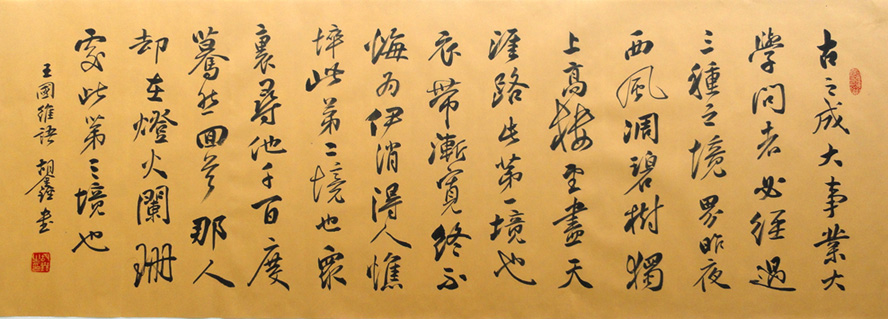 古之成大事業大
學问者必經過
三種之境界昨夜
西風凋碧樹獨
上高楼望盡天
涯路此第一境也
衣带漸寬終不
悔为伊消得人憔
悴此第二境也眾
裏尋他千百度
驀然回首那人
却在燈火闌珊
處此第三境也
王國維語 胡鑫書